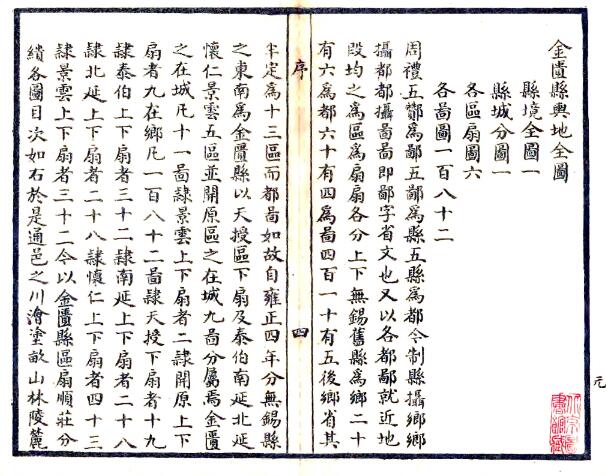 金匱縣輿地全圖
縣境全圖一
縣城分圖一
各區扇圖六
各啚圖一百八十二
周禮五酇為鄙五鄙為縣五縣為都今制縣攝鄉鄉
攝都都攝啚啚即鄙字省文也又以各都鄙就近地
段均之為區為扇扇各分上下無錫舊縣為鄉二十
有六為都六十有四為啚四百一十有五後鄉省其
序 四
半定為十三區而都啚如故自雍正四年分無錫縣
之東南為金匱縣以天授區下扇及泰伯南延北延
懷仁景雲五區並開原區之在城九啚分屬焉金匱
之在城凡十一啚隸景雲上下扇者二隸開原上下
扇者九在鄉凡一百八十二啚隸天授下扇者十九
隸泰伯上下扇者三十二隸南延上下扇者二十八
隸北延上下扇者二十八隸懷仁上下扇者四十三
隸景雲上下扇者三十二今以金匱縣區扇順莊分
繢各圖目次如右於是通邑之川澮塗畝山林陵麓
元